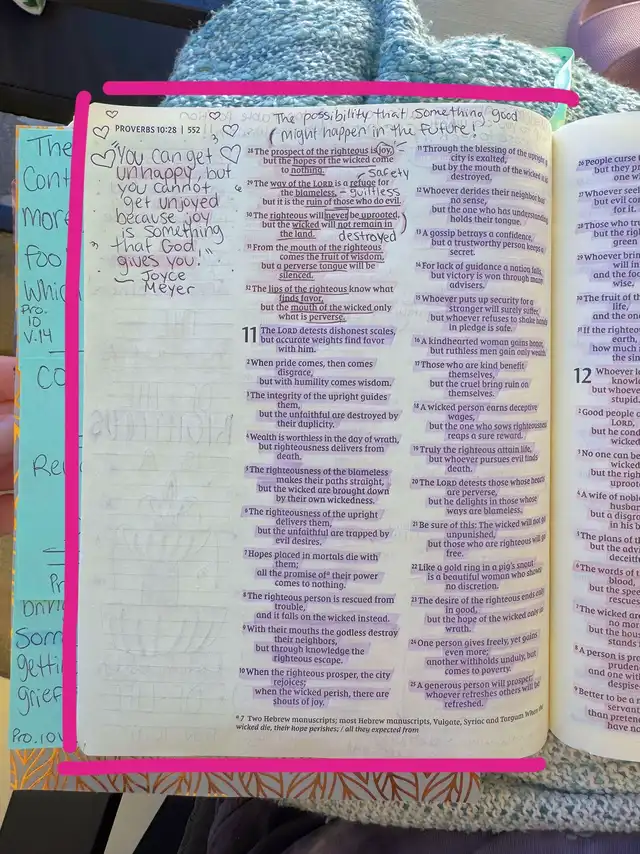 The possibility that something good
might happen in the future!
PROVERBS 10:28 | 552
"You can get
unhappy, but
you cannot
get unjoyed
because joy
is something
that God
gives you!"
— Joyce
Meyer
28 The prospect of the righteous is joy,
but the hopes of the wicked come
to nothing.
safety
29 The way of the LORD is a refuge for
the blameless, - guiltless
but it is the ruin of those who do evil.
30 The righteous will never be uprooted,
but the wicked will not remain in
the land. destroyed
31 From the mouth of the righteous
comes the fruit of wisdom,
but a perverse tongue will be
silenced.
32 The lips of the righteous know what
finds favor,
but the mouth of the wicked only
what is perverse.
11 The LORD detests dishonest scales,
but accurate weights find favor
with him.
2 When pride comes, then comes
disgrace,
but with humility comes wisdom.
3 The integrity of the upright guides
them,
but the unfaithful are destroyed by
their duplicity.
4 Wealth is worthless in the day of wrath,
but righteousness delivers from
death.
5 The righteousness of the blameless
makes their paths straight,
but the wicked are brought down
by their own wickedness.
6 The righteousness of the upright
delivers them,
but the unfaithful are trapped by
evil desires.
7 Hopes placed in mortals die with
them;
all the promise of a their power
comes to nothing.
8 The righteous person is rescued from
trouble,
and it falls on the wicked instead.
9 With their mouths the godless destroy
their neighbors,
but through knowledge the
righteous escape.
10 When the righteous prosper, the city
rejoices;
when the wicked perish, there are
shouts of joy.
11 Through the blessing of the upright a
city is exalted,
but by the mouth of the wicked it is
destroyed.
12 Whoever derides their neighbor has
no sense,
but the one who has understanding
holds their tongue.
13 A gossip betrays a confidence,
but a trustworthy person keeps a
secret.
14 For lack of guidance a nation falls,
but victory is won through many
advisers.
15 Whoever puts up security for a
stranger will surely suffer,
but whoever refuses to shake hands
in pledge is safe.
16 A kindhearted woman gains honor,
but ruthless men gain only wealth.
17 Those who are kind benefit
themselves,
but the cruel bring ruin on
themselves.
18 A wicked person earns deceptive
wages,
but the one who sows righteousness
reaps a sure reward.
19 Truly the righteous attain life,
but whoever pursues evil finds
death.
20 The LORD detests those whose hearts
are perverse,
but he delights in those whose
ways are blameless.
21 Be sure of this: The wicked will not go
unpunished,
but those who are righteous will go
free.
22 Like a gold ring in a pig's snout
is a beautiful woman who shows
no discretion.
23 The desire of the righteous ends only
in good,
but the hope of the wicked only in
wrath.
24 One person gives freely, yet gains
even more;
another withholds unduly, but
comes to poverty.
25 A generous person will prosper;
whoever refreshes others will be
refreshed.
a 7 Two Hebrew manuscripts; most Hebrew manuscripts, Vulgate, Syriac and Targum When the
wicked die, their hope perishes; / all they expected from
The
more
Pro.
10
V.14
Pro. 10
26 People curse
27 Whoever
28 Those who
29 Whoever
will in
30 The fruit of
life,
12 Whoever
3 No one can be
4 A wife of
husband's
5 The plans of
6 The words of
7 The wicked are
8 A person is
9 Better to be a
servant
than
have no